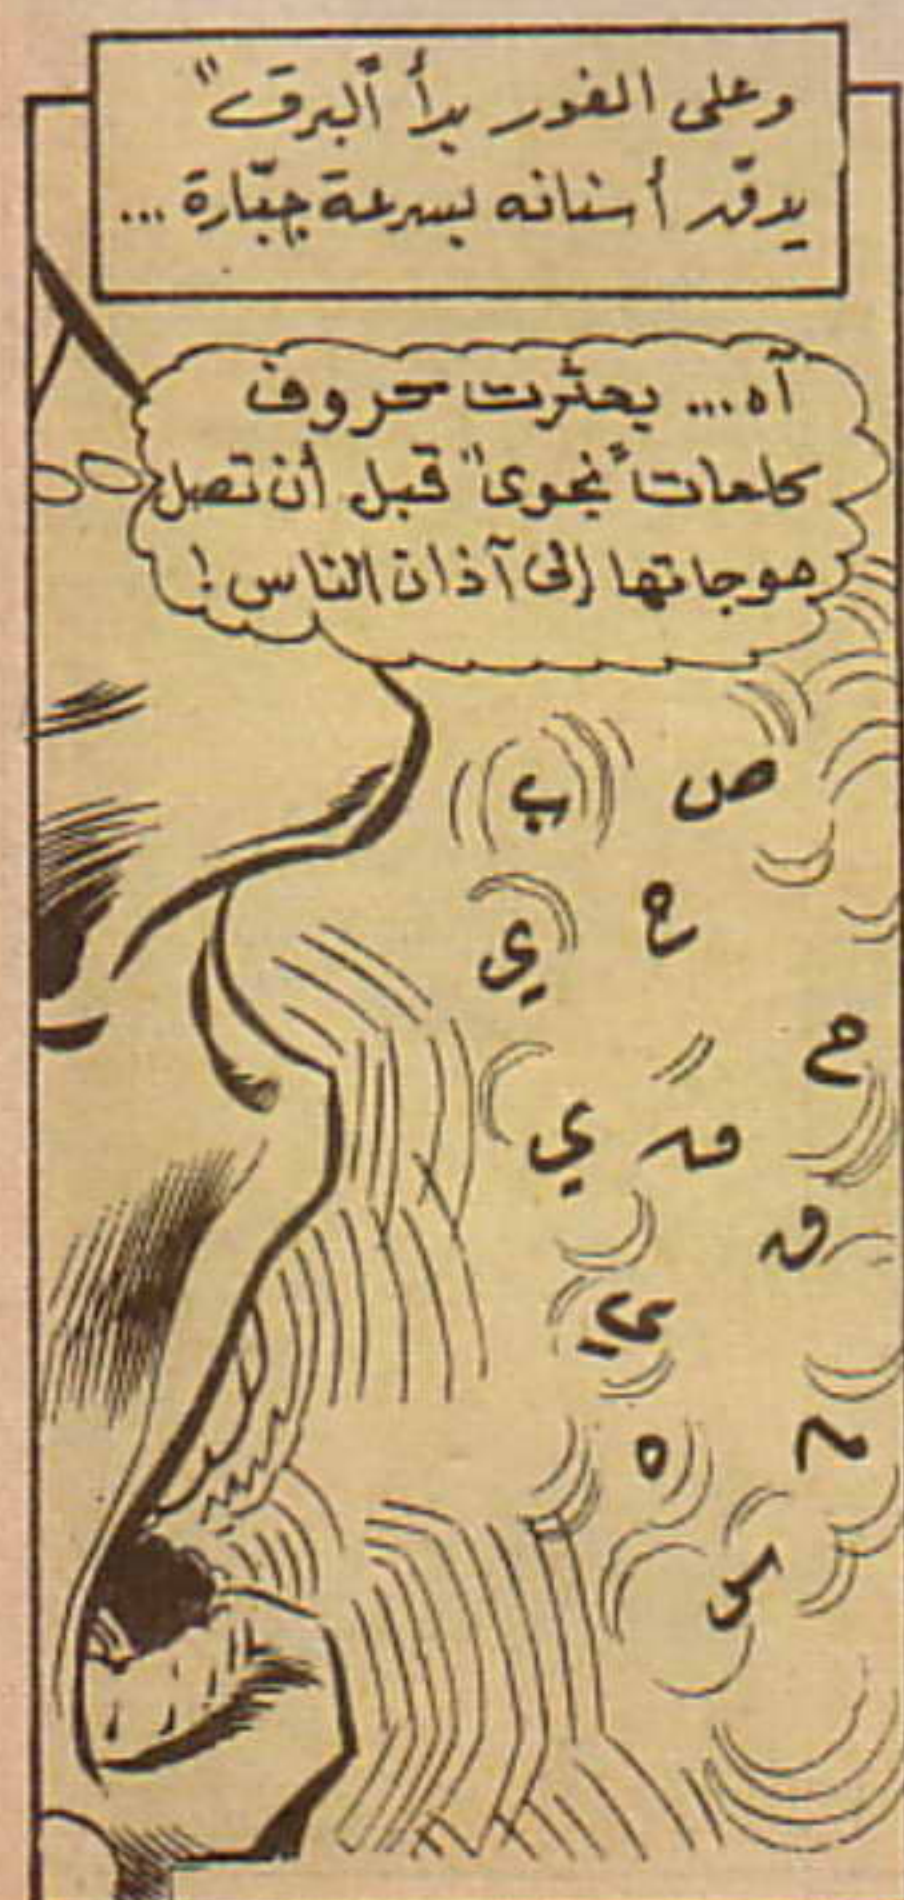 وعلى الفور بدأ "البرق"
يدقّ أسنانه بسرعة جبّارة ...
آه... بعثرت حروف
كلمات "نجوى" قبل أن تصل
موجاتها إلى آذان الناس!
ص ب
م ي
م
ق ي
ق
ي
ه